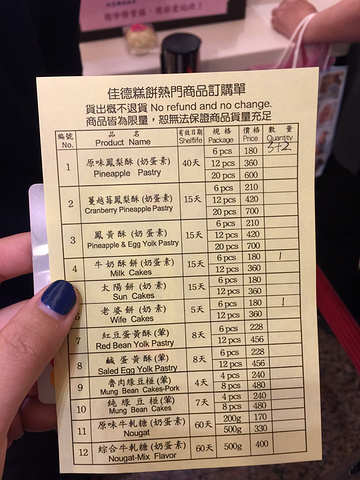 佳德糕餅熱門商品訂購單
貨出概不退貨 No refund and no change.
商品皆為限量，恕無法保證商品貨量充足
編號 品名 有效日期 規格 價格 數量
No. Product Name Shelflife Package Price Quantity
1 原味鳳梨酥 (奶蛋素) Pineapple Pastry 40天 6 pcs 180 3+2
12 pcs 360
20 pcs 600
2 蔓越莓鳳梨酥 (奶蛋素) Cranberry Pineapple Pastry 15天 6 pcs 210
12 pcs 420
20 pcs 700
3 鳳黃酥 (奶蛋素) Pineapple & Egg Yolk Pastry 15天 6 pcs 210
12 pcs 420
20 pcs 700
4 牛奶酥餅 (奶蛋素) Milk Cakes 15天 6 pcs 180 1
12 pcs 360
太陽餅 (奶蛋素) Sun Cakes 15天 6 pcs 180
12 pcs 360
老婆餅 (奶蛋素) Wife Cakes 5天 6 pcs 180 1
12 pcs 360
7 紅豆蛋黃酥 (葷) Red Bean Yolk Pastry 8天 6 pcs 228
12 pcs 456
8 鹹蛋黃酥 (葷) Saled Egg Yolk Pastry 8天 6 pcs 228
12 pcs 456
9 魯肉綠豆椪 (葷) Mung Bean Cakes-Pork 4天 4 pcs 240
8 pcs 480
10 純綠豆椪 (奶蛋素) Mung Bean Cakes 7天 4 pcs 240
8 pcs 480
11 原味牛軋糖 (奶蛋素) Nougat 60天 200g 170
500g 330
12 綜合牛軋糖 (奶蛋素) Nougat-Mix Flavor 60天 500g 400